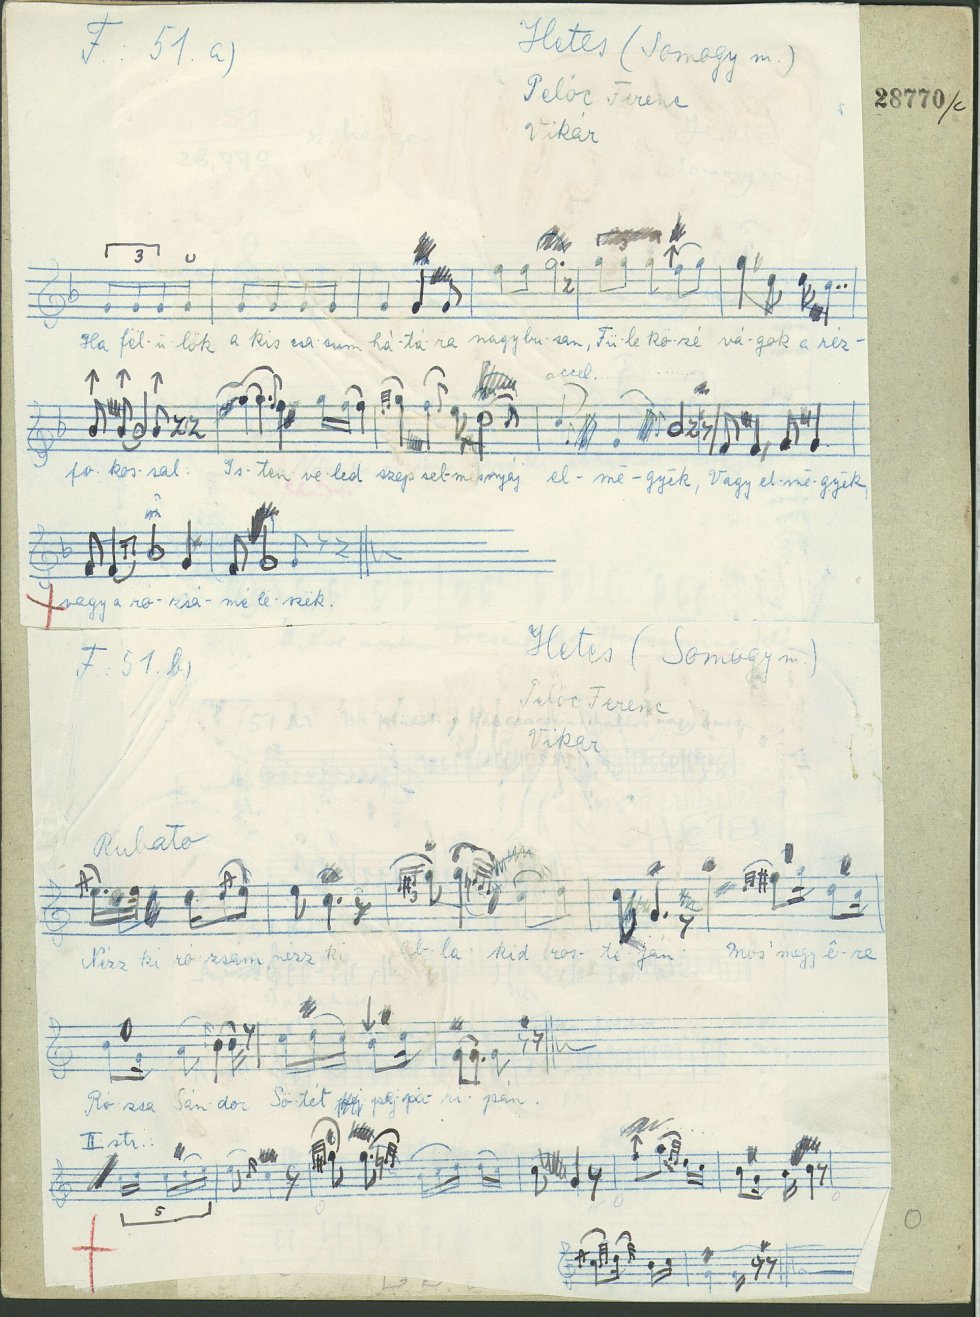 F. 51. a)
Hetes (Somogy m.)
Pelóc Ferenc
Vikár
28770/c
3
3
Ha fel-ü-lök a kis csa-csum há-tá-ra nagybu-san, Fü-le kö-zé vá-gok a réz-
accel.
fo-kos-sal. Is-ten ve-led szép sel-mësnyáj el-më-gyëk, Vagy el-më-gyëk,
vagy a ró-zsá-mé le-szëk.
F. 51. b)
Hetes (Somogy m.)
Pelóc Ferenc
Vikár
Rubato
Nézz ki ró-zsám, nézz ki ab-la-kid ros-té-ján Most mëgy ê-ra
Ró-zsa Sán-dor Sö-tét paj-pa-ri-pán.
II str.:
5